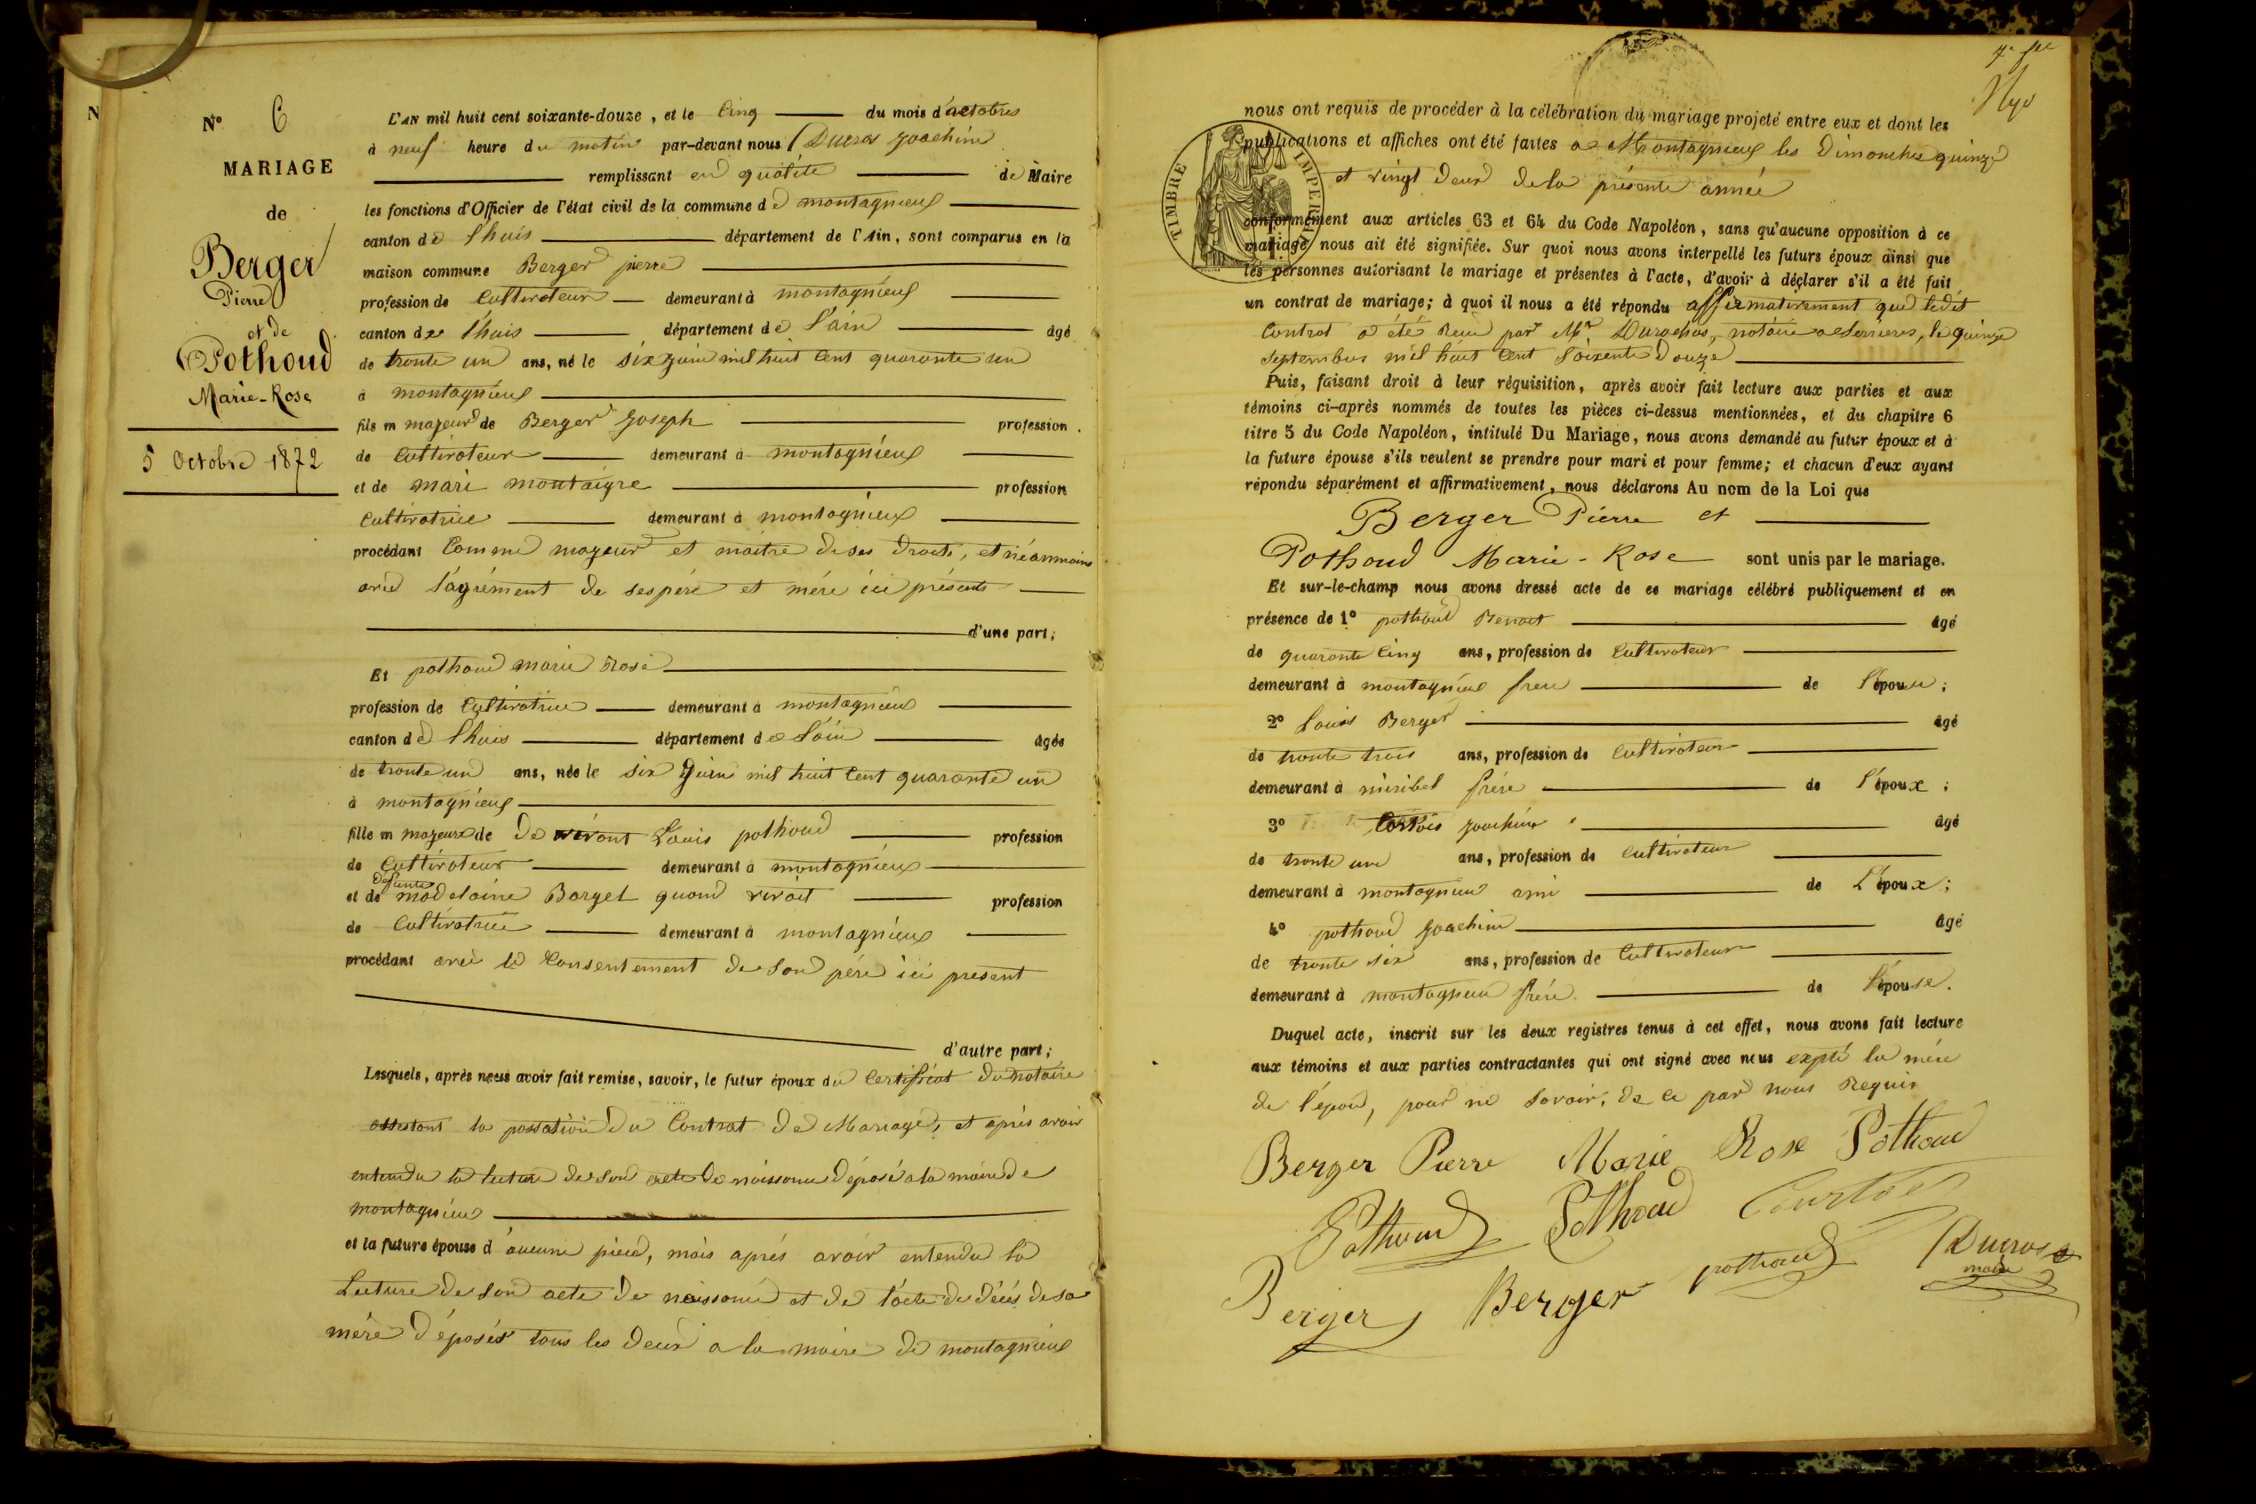 N
N° 6
MARIAGE
de
Berger
Pierre
et de
Pothoud
Marie-Rose
5 Octobre 1872
L'AN mil huit cent soixante-douze, et le Cinq du mois d'octobres
à neuf heure du matin par-devant nous Ducros joachim
remplissant en qualité de Maire
les fonctions d'Officier de l'état civil de la commune de montagnieux
canton de lhuis département de l'Ain, sont comparus en la
maison commune Berger pierre
profession de Cultivateur demeurant à montagnieux
canton de lhuis département de l'ain âgé
de trente un ans, né le six juin mil huit Cent quarante un
à montagnieux
fils m majeur de Berger joseph profession
de Cultivateur demeurant à montagnieux
et de mari montaigre profession
Cultivatrice demeurant à montagnieux
procédant Comme majeur et maitre de ses droits, et néanmoins
avec l'agrément de ses père et mére ici présents
d'une part;
Et pothoud marie Rose
profession de Cultivatrice demeurant à montagnieux
canton de lhuis département de l'ain âgée
de trente un ans, née le six juin mil huit Cent quarante un
à montagnieux
fille m majeure de de vivant Louis pothoud profession
de Cultivateur demeurant à montagnieux
défunte
et de madelaine Barget quand vivait profession
de Cultivatrice demeurant à montagnieux
procédant avec le Consentement de son pére ici present
d'autre part;
Lesquels, après nous avoir fait remise, savoir, le futur époux du Certificat du notaire
attestant la passation du Contrat de Mariage, et aprés avoir
entendu la lecture de son acte de naissance déposé a la mairie de
montagnieux
et la future épouse d'aucune piece, mais aprés avoir entendu la
Lecture de son acte de naissance et de l'acte de décés de sa
mére déposés tous les deux a la mairie de montagnieux
TIMBRE IMPERIAL
nous ont requis de procéder à la célébration du mariage projeté entre eux et dont les
publications et affiches ont été faites a Montagnieux les Dimanches quinze
et vingt deux de la présente année
conformément aux articles 63 et 64 du Code Napoléon, sans qu'aucune opposition à ce
mariage nous ait été signifiée. Sur quoi nous avons interpellé les futurs époux ainsi que
les personnes autorisant le mariage et présentes à l'acte, d'avoir à déclarer s'il a été fait
un contrat de mariage; à quoi il nous a été répondu affirmativement que ledit
Contrat a été Recu par Mr notaire a Serrieres, le quinze
septembres mil huit Cent Soixente Douze
Puis, faisant droit à leur réquisition, après avoir fait lecture aux parties et aux
témoins ci-après nommés de toutes les pièces ci-dessus mentionnées, et du chapitre 6
titre 5 du Code Napoléon, intitulé Du Mariage, nous avons demandé au futur époux et à
la future épouse s'ils veulent se prendre pour mari et pour femme; et chacun d'eux ayant
répondu séparément et affirmativement, nous déclarons Au nom de la Loi que
Berger Pierre et
Pothoud Marie-Rose sont unis par le mariage.
Et sur-le-champ nous avons dressé acte de ce mariage célébré publiquement et en
présence de 1° pothoud Benoit âgé
de quarante Cinq ans, profession de Cultivateur
demeurant à montagnieux frere de l'épouse;
2° Louis Berger âgé
de trente trois ans, profession de Cultivateur
demeurant à miribel frére de l'époux;
3° joachim âgé
de trente un ans, profession de Cultivateur
demeurant à montagnieu ami de L'époux;
4° pothoud joachim âgé
de trente six ans, profession de Cultivateur
demeurant à montagnieu frére de l'épouse.
Duquel acte, inscrit sur les deux registres tenus à cet effet, nous avons fait lecture
aux témoins et aux parties contractantes qui ont signé avec nous expté la mére
de l'époux, pour ne savoir, de ce par nous Requis
Berger Pierre Marie Rose Pothoud
Pothoud Pothoud Courtois
Berger Berger pothoud Ducros
maire